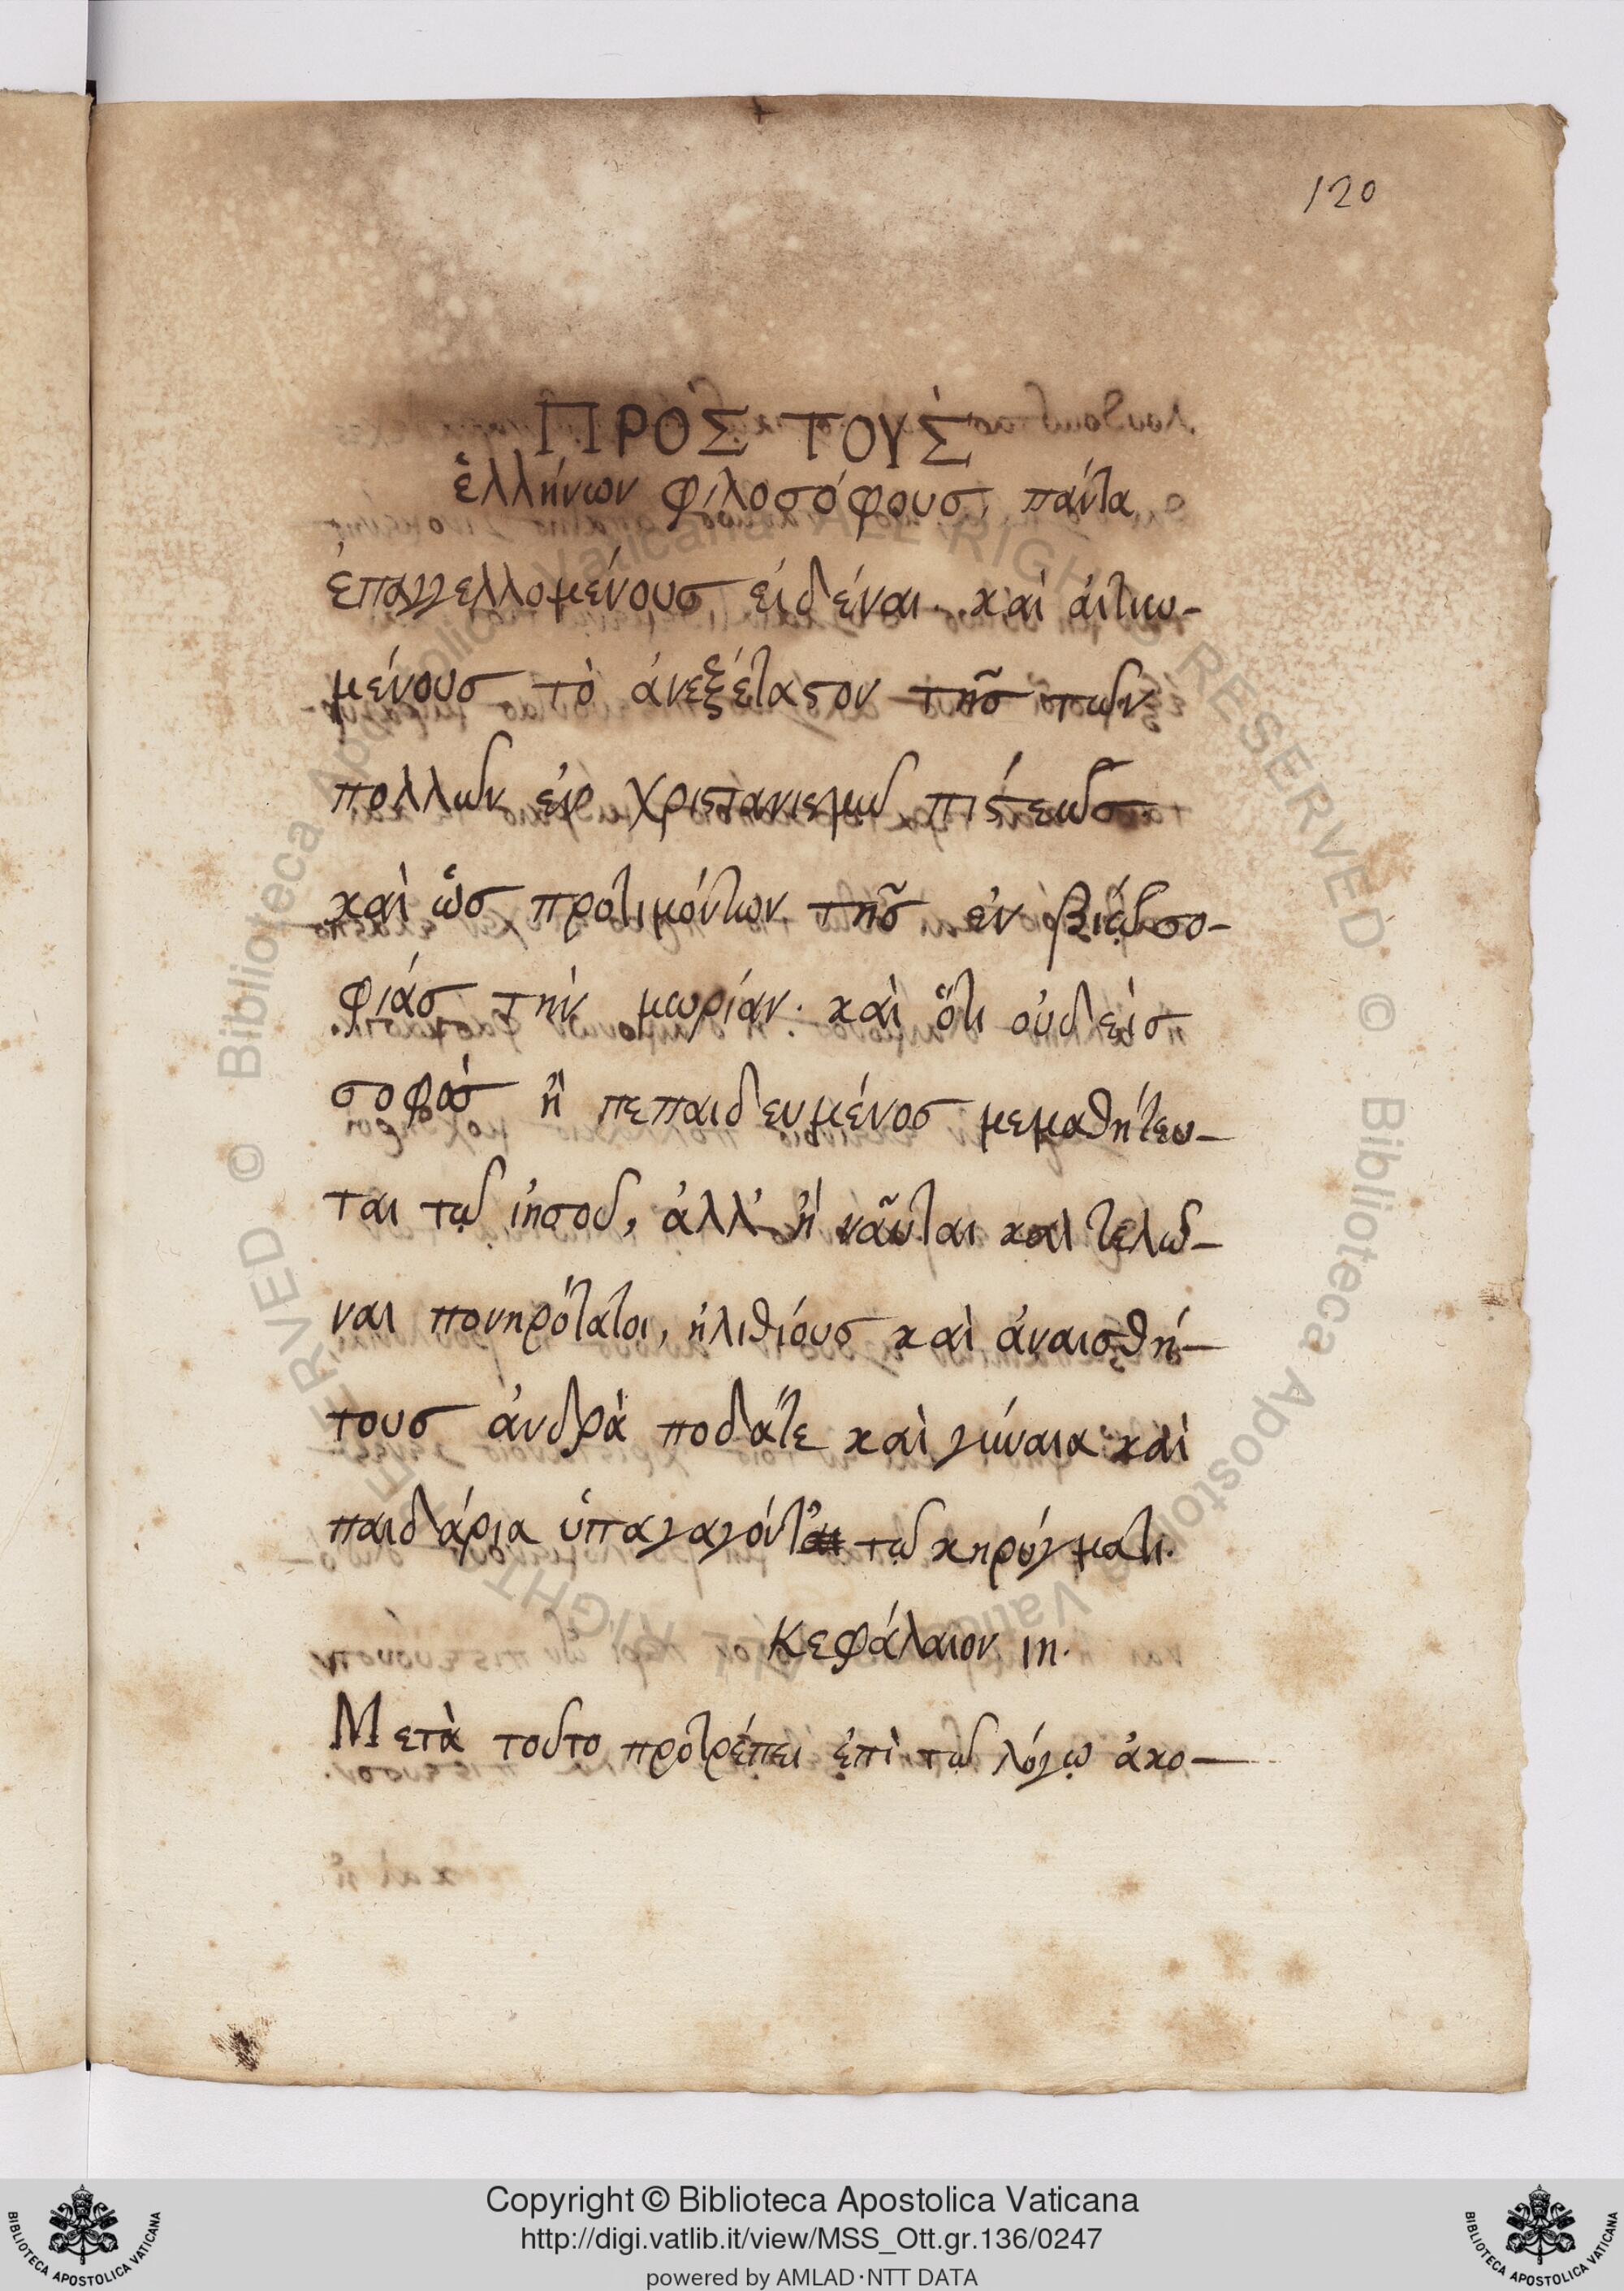 120
ΠΡΟΣ ΤΟΥΣ
ἑλλήνων φιλοσόφους, πάντα
ἐπαγγελλομένους εἰδέναι· καὶ αἰτιω-
μένους τὸ ἀνεξέταστον τῆς τῶν
πολλῶν ἐν χριστανισμῶ πίστεως
καὶ ὡς προτιμόντων τῆς ἐν βιῷ σο-
φιάς τὴν μωρίαν· καὶ ὅτι οὐδεὶς
σοφὸς ἢ πεπαιδευμένος μεμαθήτευ-
ται τῷ ἰησοῦ, ἀλλ' ἢ ναῦται καὶ τελῶ-
ναι πονηρότατοι, ἠλιθιόυς καὶ ἀναισθή-
τους ἀνδρὰ ποδάτε καὶ γύναια καὶ
παιδάρια ὑπαγαγόντ τῷ κηρύγματι.
Κεφάλαιον ιη.
Μετὰ τοῦτο προτρέπει ἐπὶ τῷ λόγῳ ἀκο-
Copyright © Biblioteca Apostolica Vaticana
http://digi.vatlib.it/view/MSS_Ott.gr.136/0247
powered by AMLAD·NTT DATA
BIBLIOTECA APOSTOLICA VATICANA
BIBLIOTECA APOSTOLICA VATICANA